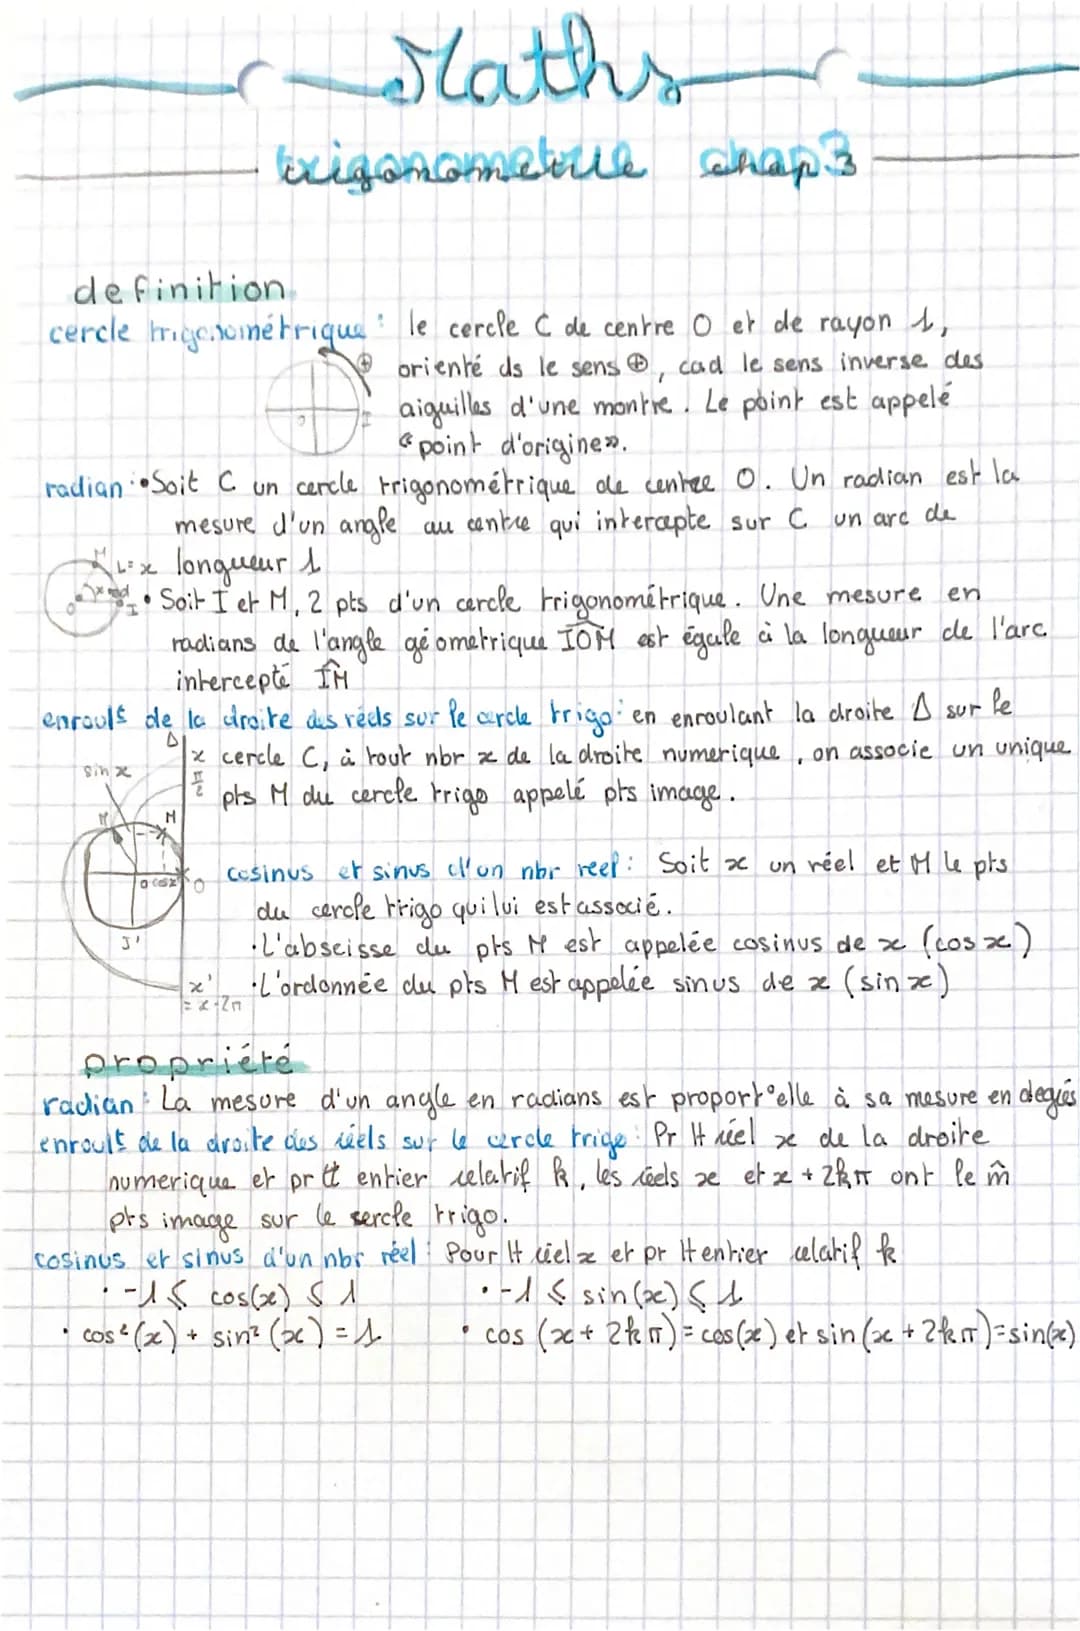 Maths
trigonometrie chap.3
definition
cercle trigonométrique : le cercle C de centre O et de rayon 1,
orienté ds le sens ⊕, cad le sens inverse des
aiguilles d'une montre. Le point est appelé
« point d'origine ».
⊕
O
I
radian : • Soit C un cercle trigonométrique de centre O. Un radian est la
mesure d'un angle au centre qui intercepte sur C un arc de
longueur 1
M
L = x
x rad
O
I
• Soit I et M, 2 pts d'un cercle trigonométrique. Une mesure en
radians de l'angle géometrique IOM est égale à la longueur de l'arc
intercepté IM
enroult de la droite des réels sur le cercle trigo : en enroulant la droite Δ sur le
cercle C, à tout nbr x de la droite numerique, on associe un unique
pts M du cercle trigo appelé pts image.
Δ
x
π/2
sin x
M
O cos x
O
J'
x'
= x-2π
cosinus et sinus d'un nbr reel : Soit x un réel et M le pts
du cercle trigo qui lui est associé.
• L'abscisse du pts M est appelée cosinus de x (cos x)
• L'ordonnée du pts M est appelée sinus de x (sin x)
propriété
radian : La mesure d'un angle en radians est proport°elle à sa mesure en degrés
enroult de la droite des réels sur le cercle trigo : Pr tt réel x de la droite
numerique et pr tt entier relatif k, les réels x et x + 2kπ ont le m̂
pts image sur le cercle trigo.
cosinus et sinus d'un nbr réel : Pour tt réel x et pr tt entier relatif k
• -1 ≤ cos(x) ≤ 1 • -1 ≤ sin(x) ≤ 1
• cos²(x) + sin²(x) = 1 • cos (x + 2kπ) = cos(x) et sin (x + 2kπ) = sin(x)